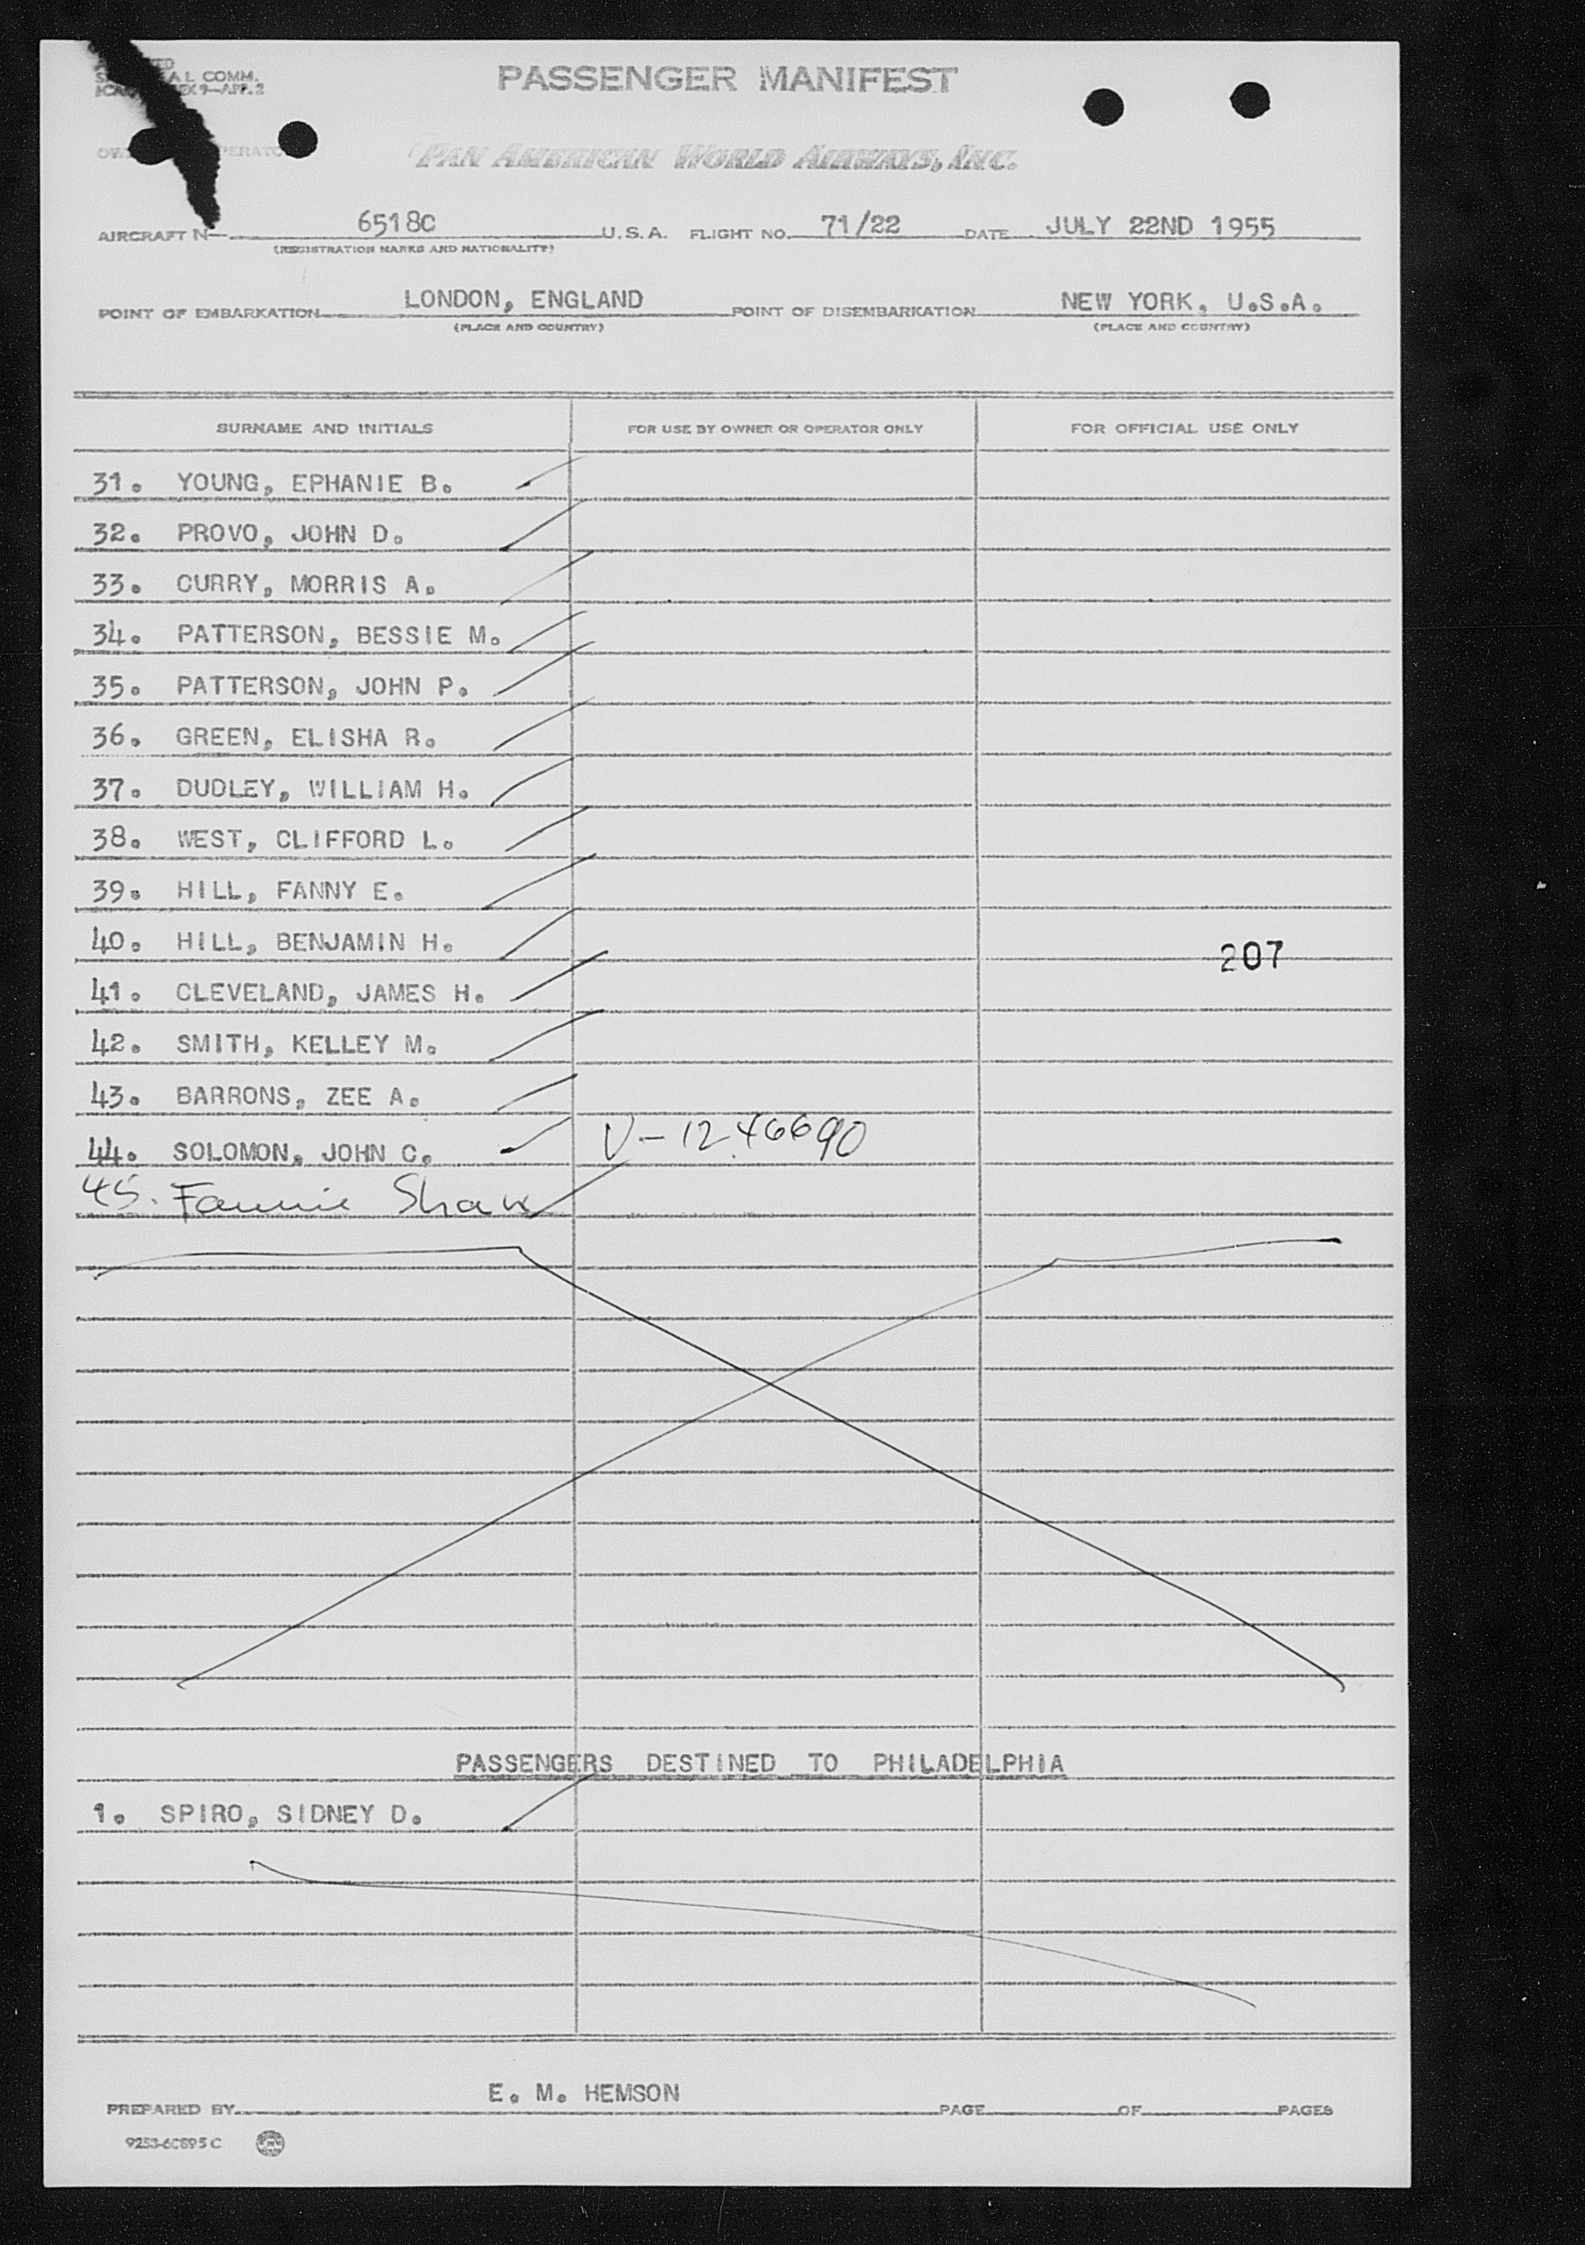 AL COMM.
9—APP. 2
PASSENGER MANIFEST
PAN AMERICAN WORLD AIRWAYS, INC.
AIRCRAFT N— 6518C U.S.A. FLIGHT NO. 71/22 DATE JULY 22ND 1955
(REGISTRATION MARKS AND NATIONALITY)
POINT OF EMBARKATION LONDON, ENGLAND POINT OF DISEMBARKATION NEW YORK, U.S.A.
(PLACE AND COUNTRY) (PLACE AND COUNTRY)
SURNAME AND INITIALS FOR USE BY OWNER OR OPERATOR ONLY FOR OFFICIAL USE ONLY
31. YOUNG, EPHANIE B.
32. PROVO, JOHN D.
33. CURRY, MORRIS A.
34. PATTERSON, BESSIE M.
35. PATTERSON, JOHN P.
36. GREEN, ELISHA R.
37. DUDLEY, WILLIAM H.
38. WEST, CLIFFORD L.
39. HILL, FANNY E.
40. HILL, BENJAMIN H. 207
41. CLEVELAND, JAMES H.
42. SMITH, KELLEY M.
43. BARRONS, ZEE A.
44. SOLOMON, JOHN C. V-1246690
45. Fannie Shaw
PASSENGERS DESTINED TO PHILADELPHIA
1. SPIRO, SIDNEY D.
E. M. HEMSON
PREPARED BY PAGE OF PAGES